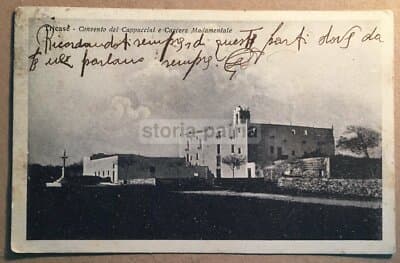 Tricase - Convento dei Cappuccini e Carcere Mandamentale
Ricordandoti sempre di questi parti dove da
te parlano sempre.
storia-patria